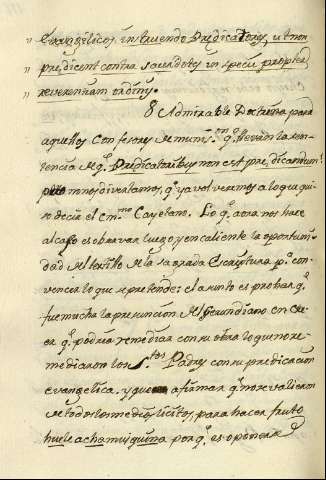 Evangelicos instruendo Predicatores, ut non
predicent contra sacerdotes in specie propter
reverentiam ordinis.
8 Admirable Doctrina para
aquellos confesores q.e llevan la sen-
tencia de q.e Predicatoribus non est predicandum:
pero no nos divirtamos, q.e ya volveremos a lo que qui-
so decir el em.mo Cayetano. Lo q.e aora nos hace
al caso es observar luego y en caliente la oportuni-
dad del textillo de la sagrada Escriptura p.a con-
vencer lo que se pretende: el asunto es probar q.e
fue mucha la presuncion del Gerundiano en cre-
er q.e podria remediar con su obra lo que no re-
mediaron los S.tos Padres con su predicacion
evangelica. y que afirmar q.e no se valieron
de todos los medios licitos, para hacer fruto
huele a chamusquina por q.e es oponerse